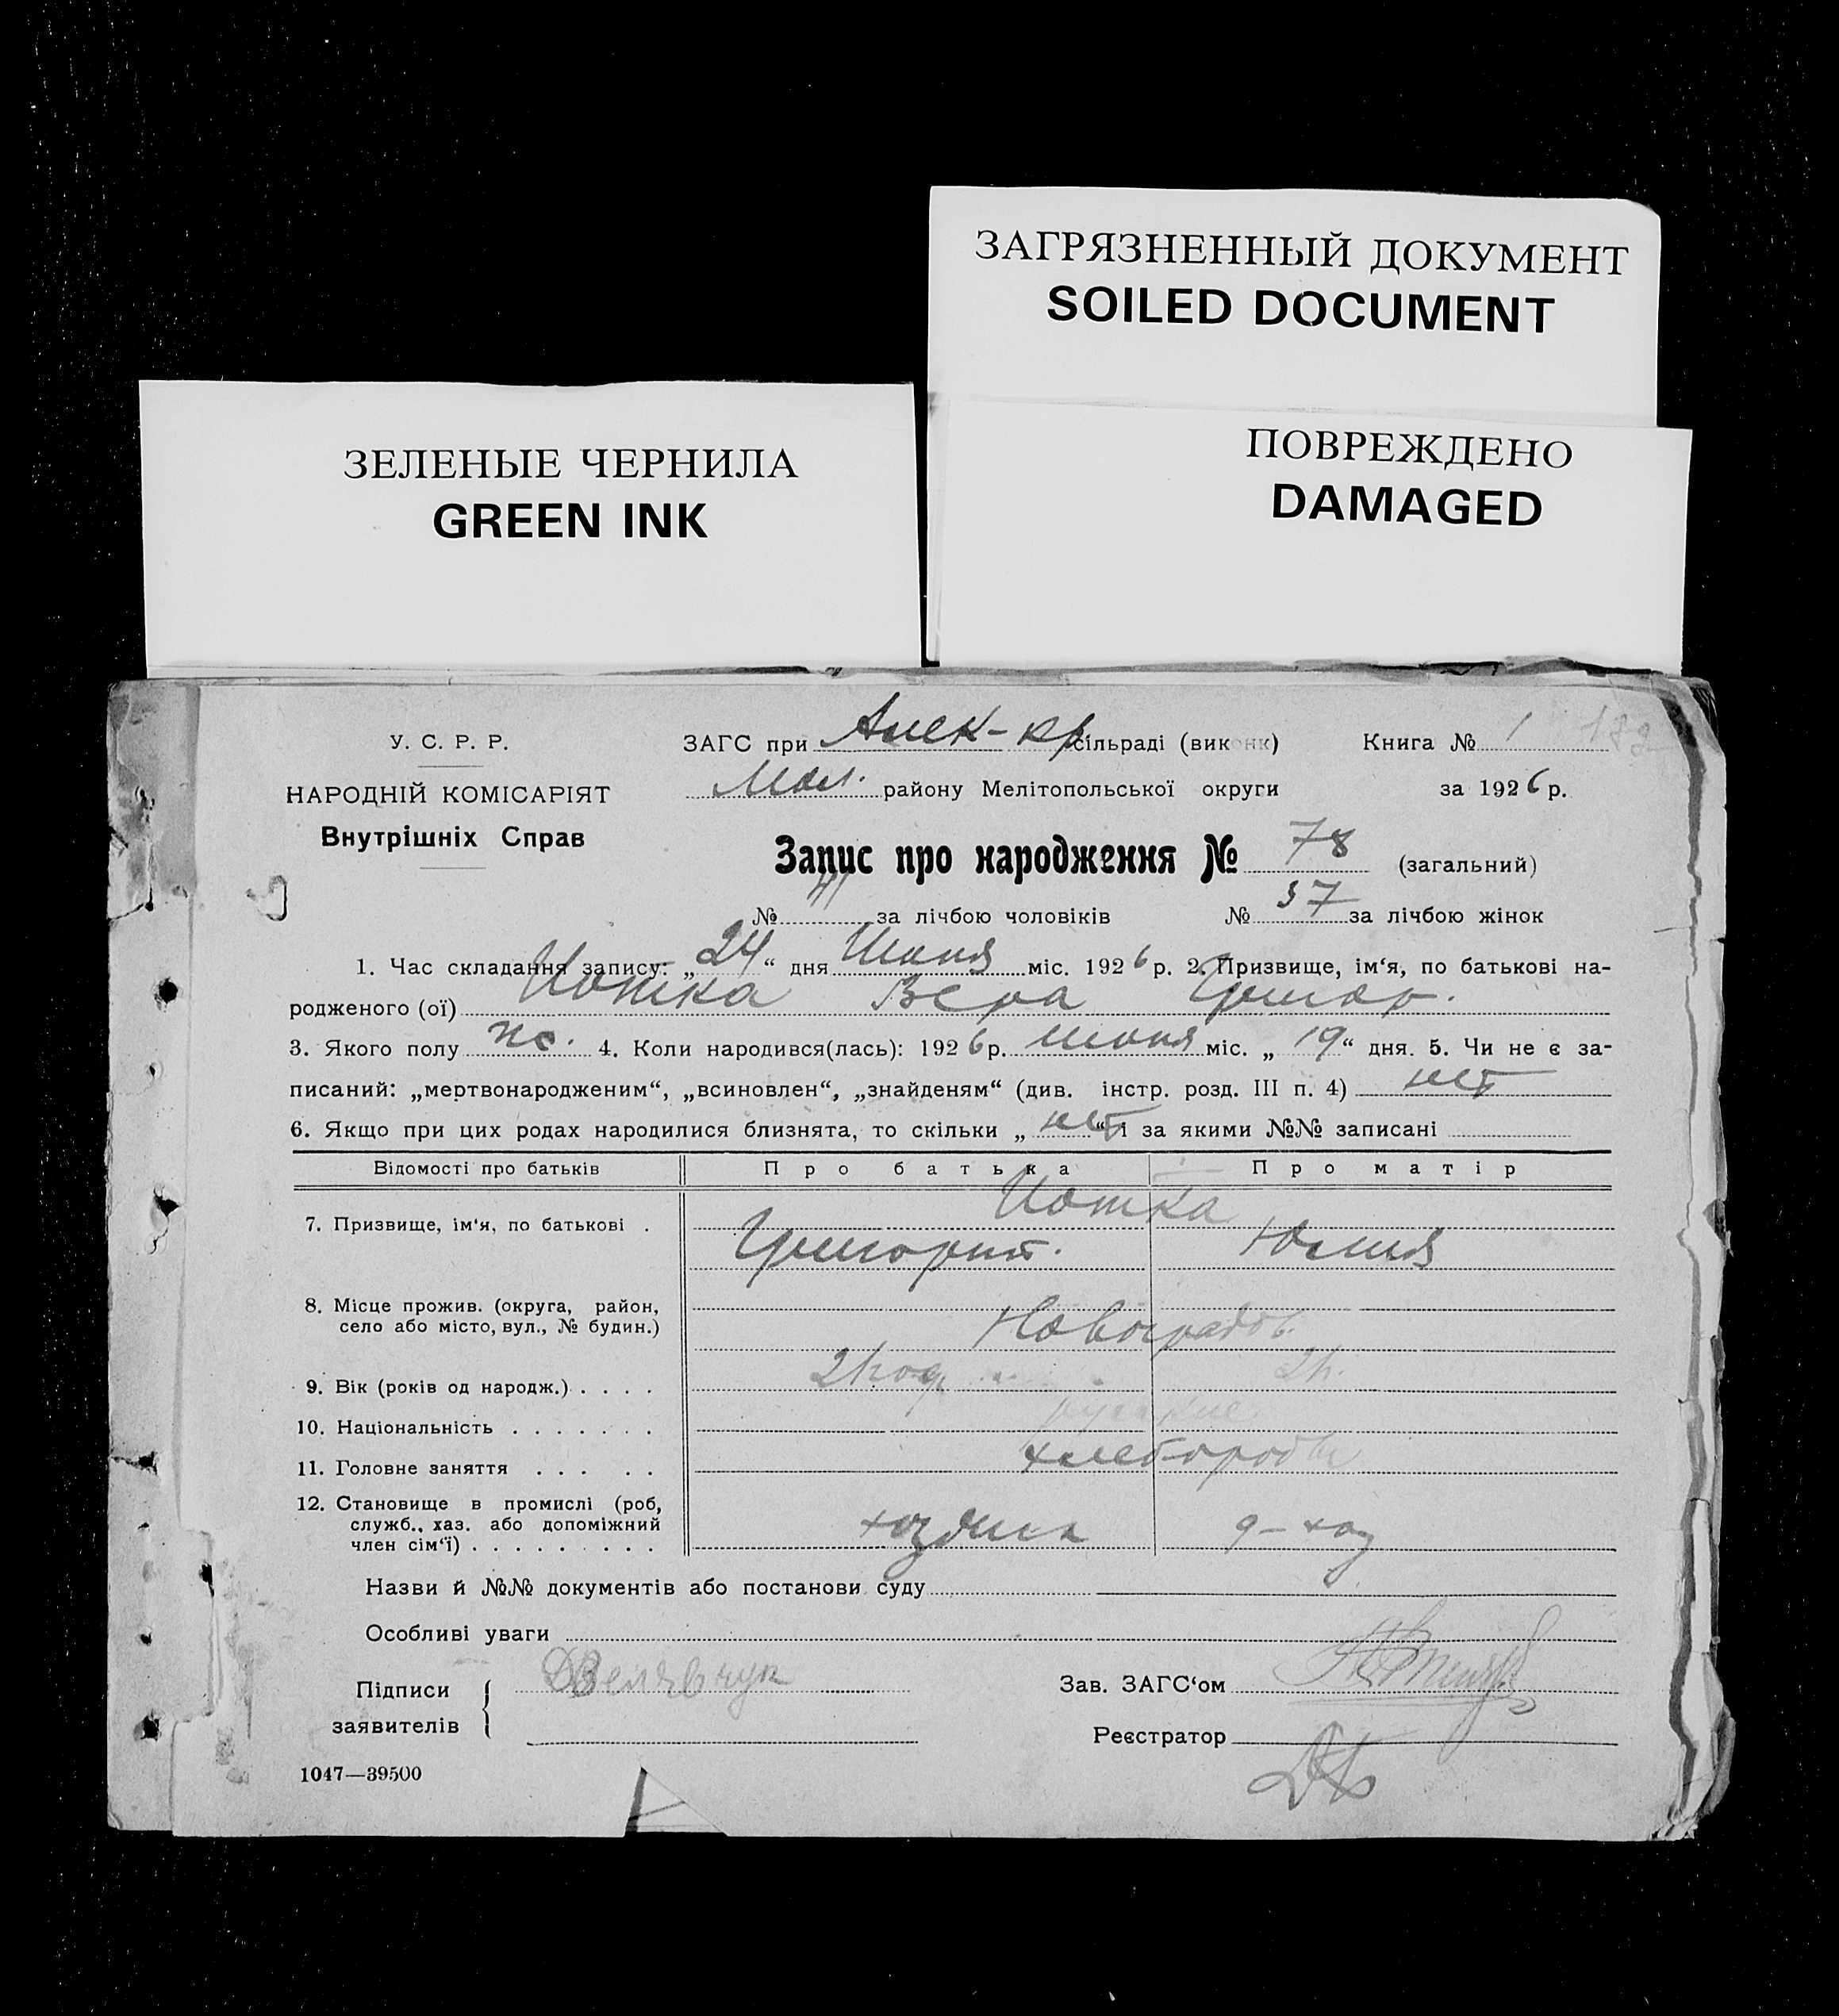 ЗАГРЯЗНЕННЫЙ ДОКУМЕНТ
SOILED DOCUMENT
ЗЕЛЕНЫЕ ЧЕРНИЛА
GREEN INK
ПОВРЕЖДЕНО
DAMAGED
У. С. Р. Р.
НАРОДНІЙ КОМІСАРІЯТ
Внутрішніх Справ
ЗАГС при Алек-кр сільраді (виконк) Книга № 1
Мел. району Мелітопольської округи за 1926 р.
Запис про народження № 78 (загальний)
№ 41 за лічбою чоловіків № 37 за лічбою жінок
1. Час складання запису: „24“ дня Июня міс. 1926 р. 2. Призвище, ім‘я, по батькові на-
родженого (ої) Иотка Вера Григор.
3. Якого полу ж. 4. Коли народився(лась): 1926 р. июня міс. „19“ дня. 5. Чи не є за-
писаний: „мертвонародженим“, „всиновлен“, „знайденям“ (див. інстр. розд. III п. 4) нет
6. Якщо при цих родах народилися близнята, то скільки „нет“ і за якими №№ записані
Відомості про батьків Про батька Про матір
7. Призвище, ім‘я, по батькові . Иотка
Григорий. Юлия
8. Місце прожив. (округа, район,
село або місто, вул., № будин.) Новоградов.
9. Вік (років од народж.) . . . . 21 год 21.
10. Національність . . . . . . . русские
11. Головне заняття . . . . . хлебороб
12. Становище в промислі (роб,
служб., хаз. або допоміжний
член сім‘ї) . . . . . . . . . хозяин д-хоз
Назви й №№ документів або постанови суду
Особливі уваги
Підписи Зав. ЗАГС‘ом
заявителів Реєстратор
1047—39500